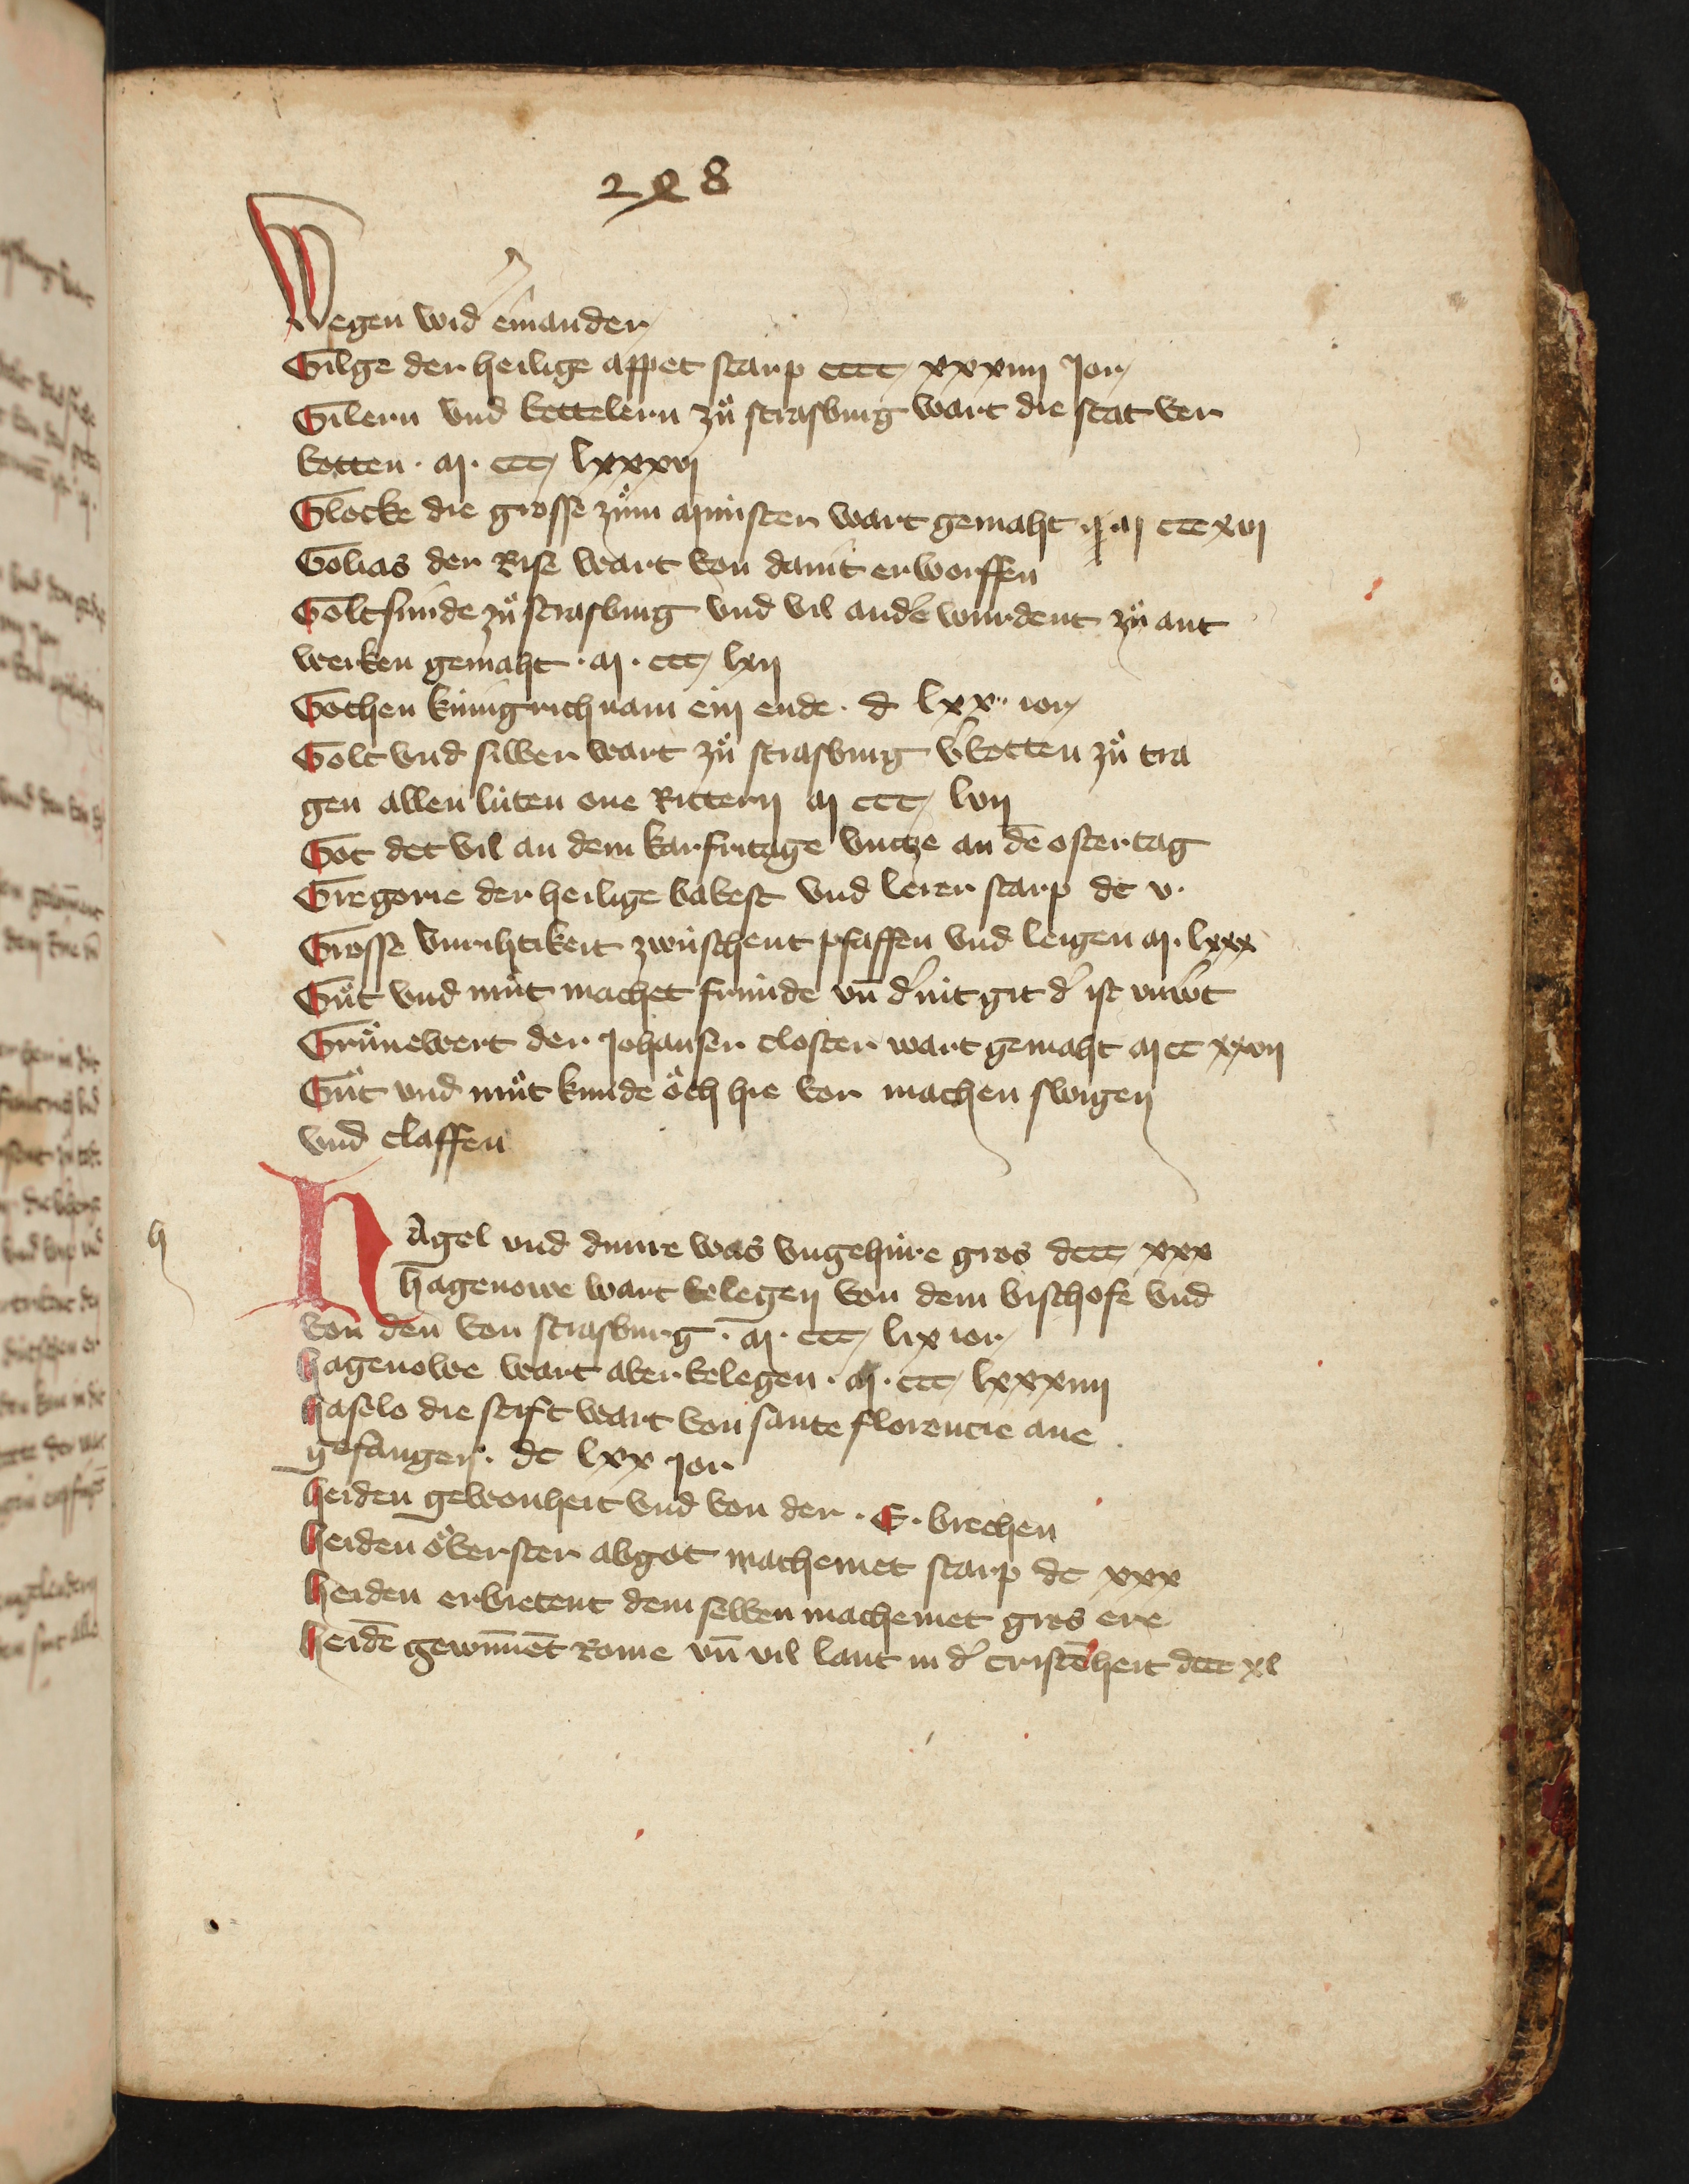 228
Wegen wid einander
Gilge der heilige appet starp cccc xxxiiii Jor
Gilern vnd bettelern zů strasburg wart die stat ver
botten · m · ccc lxxxvi
Glocke die grosse zům münster wart gemaht m ccc xvi
Golias der Rise wart von dauit erworffen
Goltsmide zů strasburg vnd vil andˀ wurdent zů ant
werken gemaht · m · ccc lxii
Gothen künigrich nam ein ende · d lxx ior
Golt vnd silber wart zů strasburg vˀbotten zů tra
gen allen lüten one Rittern m ccc lvii
Got det vil an dem karfritage vntze an dē ostertag
Gregorie der heilige babest vnd lerer starp dc v ·
Grosse vnrihtikeit zwüschent pfaffen vnd leigen m · lxxx
Gůt vnd můt machet fründe vn̄ dˀ nit git dˀ ist vnwˀt
Grůnewert der Johanser closter wart gemaht m cc xxvii
Gůt vnd můt kunde ŏch hie vor machen swigen
vnd claffen
h
Hagel vnd dunre was vngehüre gros dccc xxx
hagenowe wart belegen von dem bischofe vnd
von den von strasburg · m · ccc lix ior
hagenowe wart aber belegen · m · ccc lxxxiiii
haselo die stift wart von sante florencie ane
gefangen · dc lxx jor
heiden gewonheit vnd von der · E · brechen
heiden ŏberster abgot machemet starp dc xxx
heiden erbietent dem selben machemet gros ere
heidē gewinnēt Rome vn̄ vil lant in dˀ cristēheit dccc xl